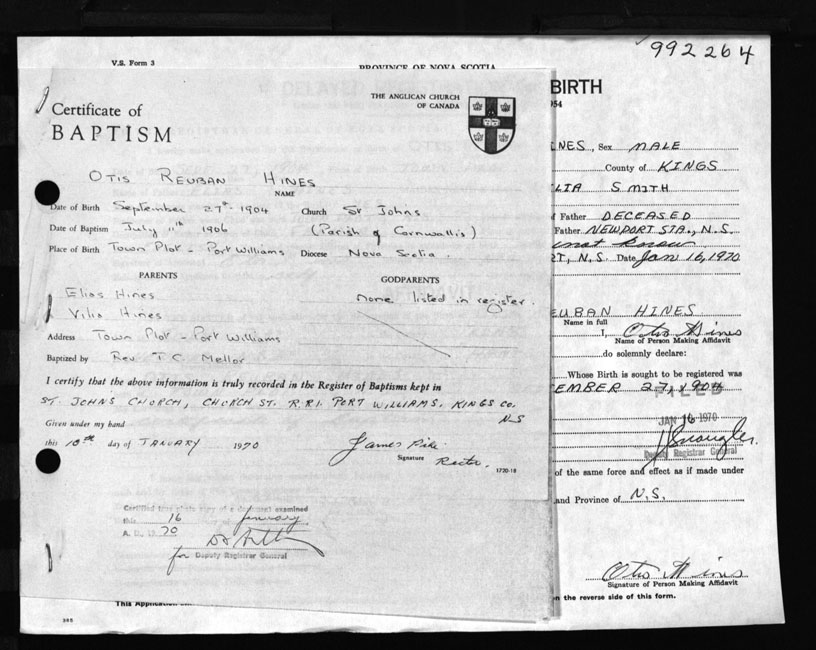 992264
V.S. Form 3
PROVINCE OF NOVA SCOTIA
BIRTH
954
Certificate of
BAPTISM
THE ANGLICAN CHURCH
OF CANADA
OTIS REUBAN HINES
NAME
Date of Birth September 27th 1904 Church St Johns
Date of Baptism July 11th 1906 (Parish of Cornwallis)
Place of Birth Town Plot - Port Williams Diocese Nova Scotia.
PARENTS GODPARENTS
Elias Hines none listed in register.
Vilia Hines
Address Town Plot - Port Williams
Baptized by Rev. T. C. Mellor
I certify that the above information is truly recorded in the Register of Baptisms kept in
ST. JOHNS CHURCH, CHURCH ST. R.R1. PORT WILLIAMS, KINGS CO.
N.S
Given under my hand
this 10th day of JANUARY 1970 James Pike
Signature Rector.
1720-18
Certified true photo copy of a document examined
this 16 of January
A. D. 1970
for Deputy Registrar General
This Application
INES, Sex MALE
County of KINGS
LIA SMITH
f Father DECEASED
Father NEWPORT STA., N.S.
not know
RT, N.S. Date Jan 16, 1970
EUBAN HINES
Name in full
I, Otis Hines
Name of Person Making Affidavit
do solemnly declare:
Whose Birth is sought to be registered was
EMBER 27, 1904
FILED
JAN 16 1970
Deputy Registrar General
of the same force and effect as if made under
and Province of N.S.
Otis Hines
Signature of Person Making Affidavit
n the reverse side of this form.